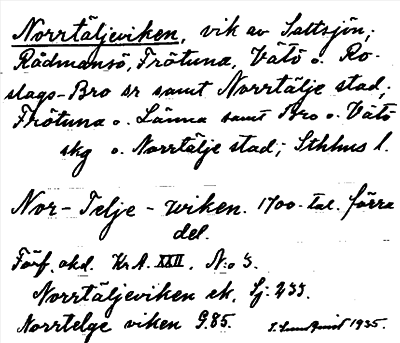 Norrtäljeviken, vik av Saltsjön;
Rådmansö, Frötuna, Vätö o. Ro-
slags-Bro sr samt Norrtälje stad;
Frötuna o. Länna samt Bro o. Vätö
skg o. Norrtälje stad; Sthlms l.
Nor-Telje-wiken. 1700-tal. förra
del.
Förf. okd. Kr.A. XXII. N:o 3.
Norrtäljeviken ek. Sj. 233.
Norrtelge viken G.85. 1935.